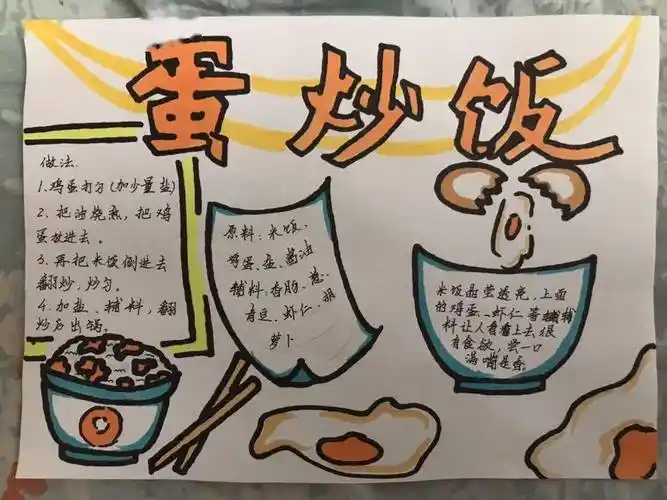 蛋炒饭
做法.
1.鸡蛋打匀(加少量盐)
2、把油烧热，把鸡
蛋放进去。
3、再把米饭倒进去
翻炒，炒匀。
4、加盐、辅料，翻
炒后出锅。
原料：米饭、
鸡蛋、盐、酱油
辅料：香肠、葱、
青豆、虾仁、胡
萝卜
米饭晶莹透亮，上面
的鸡蛋、虾仁等辅
料让人看上去很
有食欲，尝一口
满嘴是香。